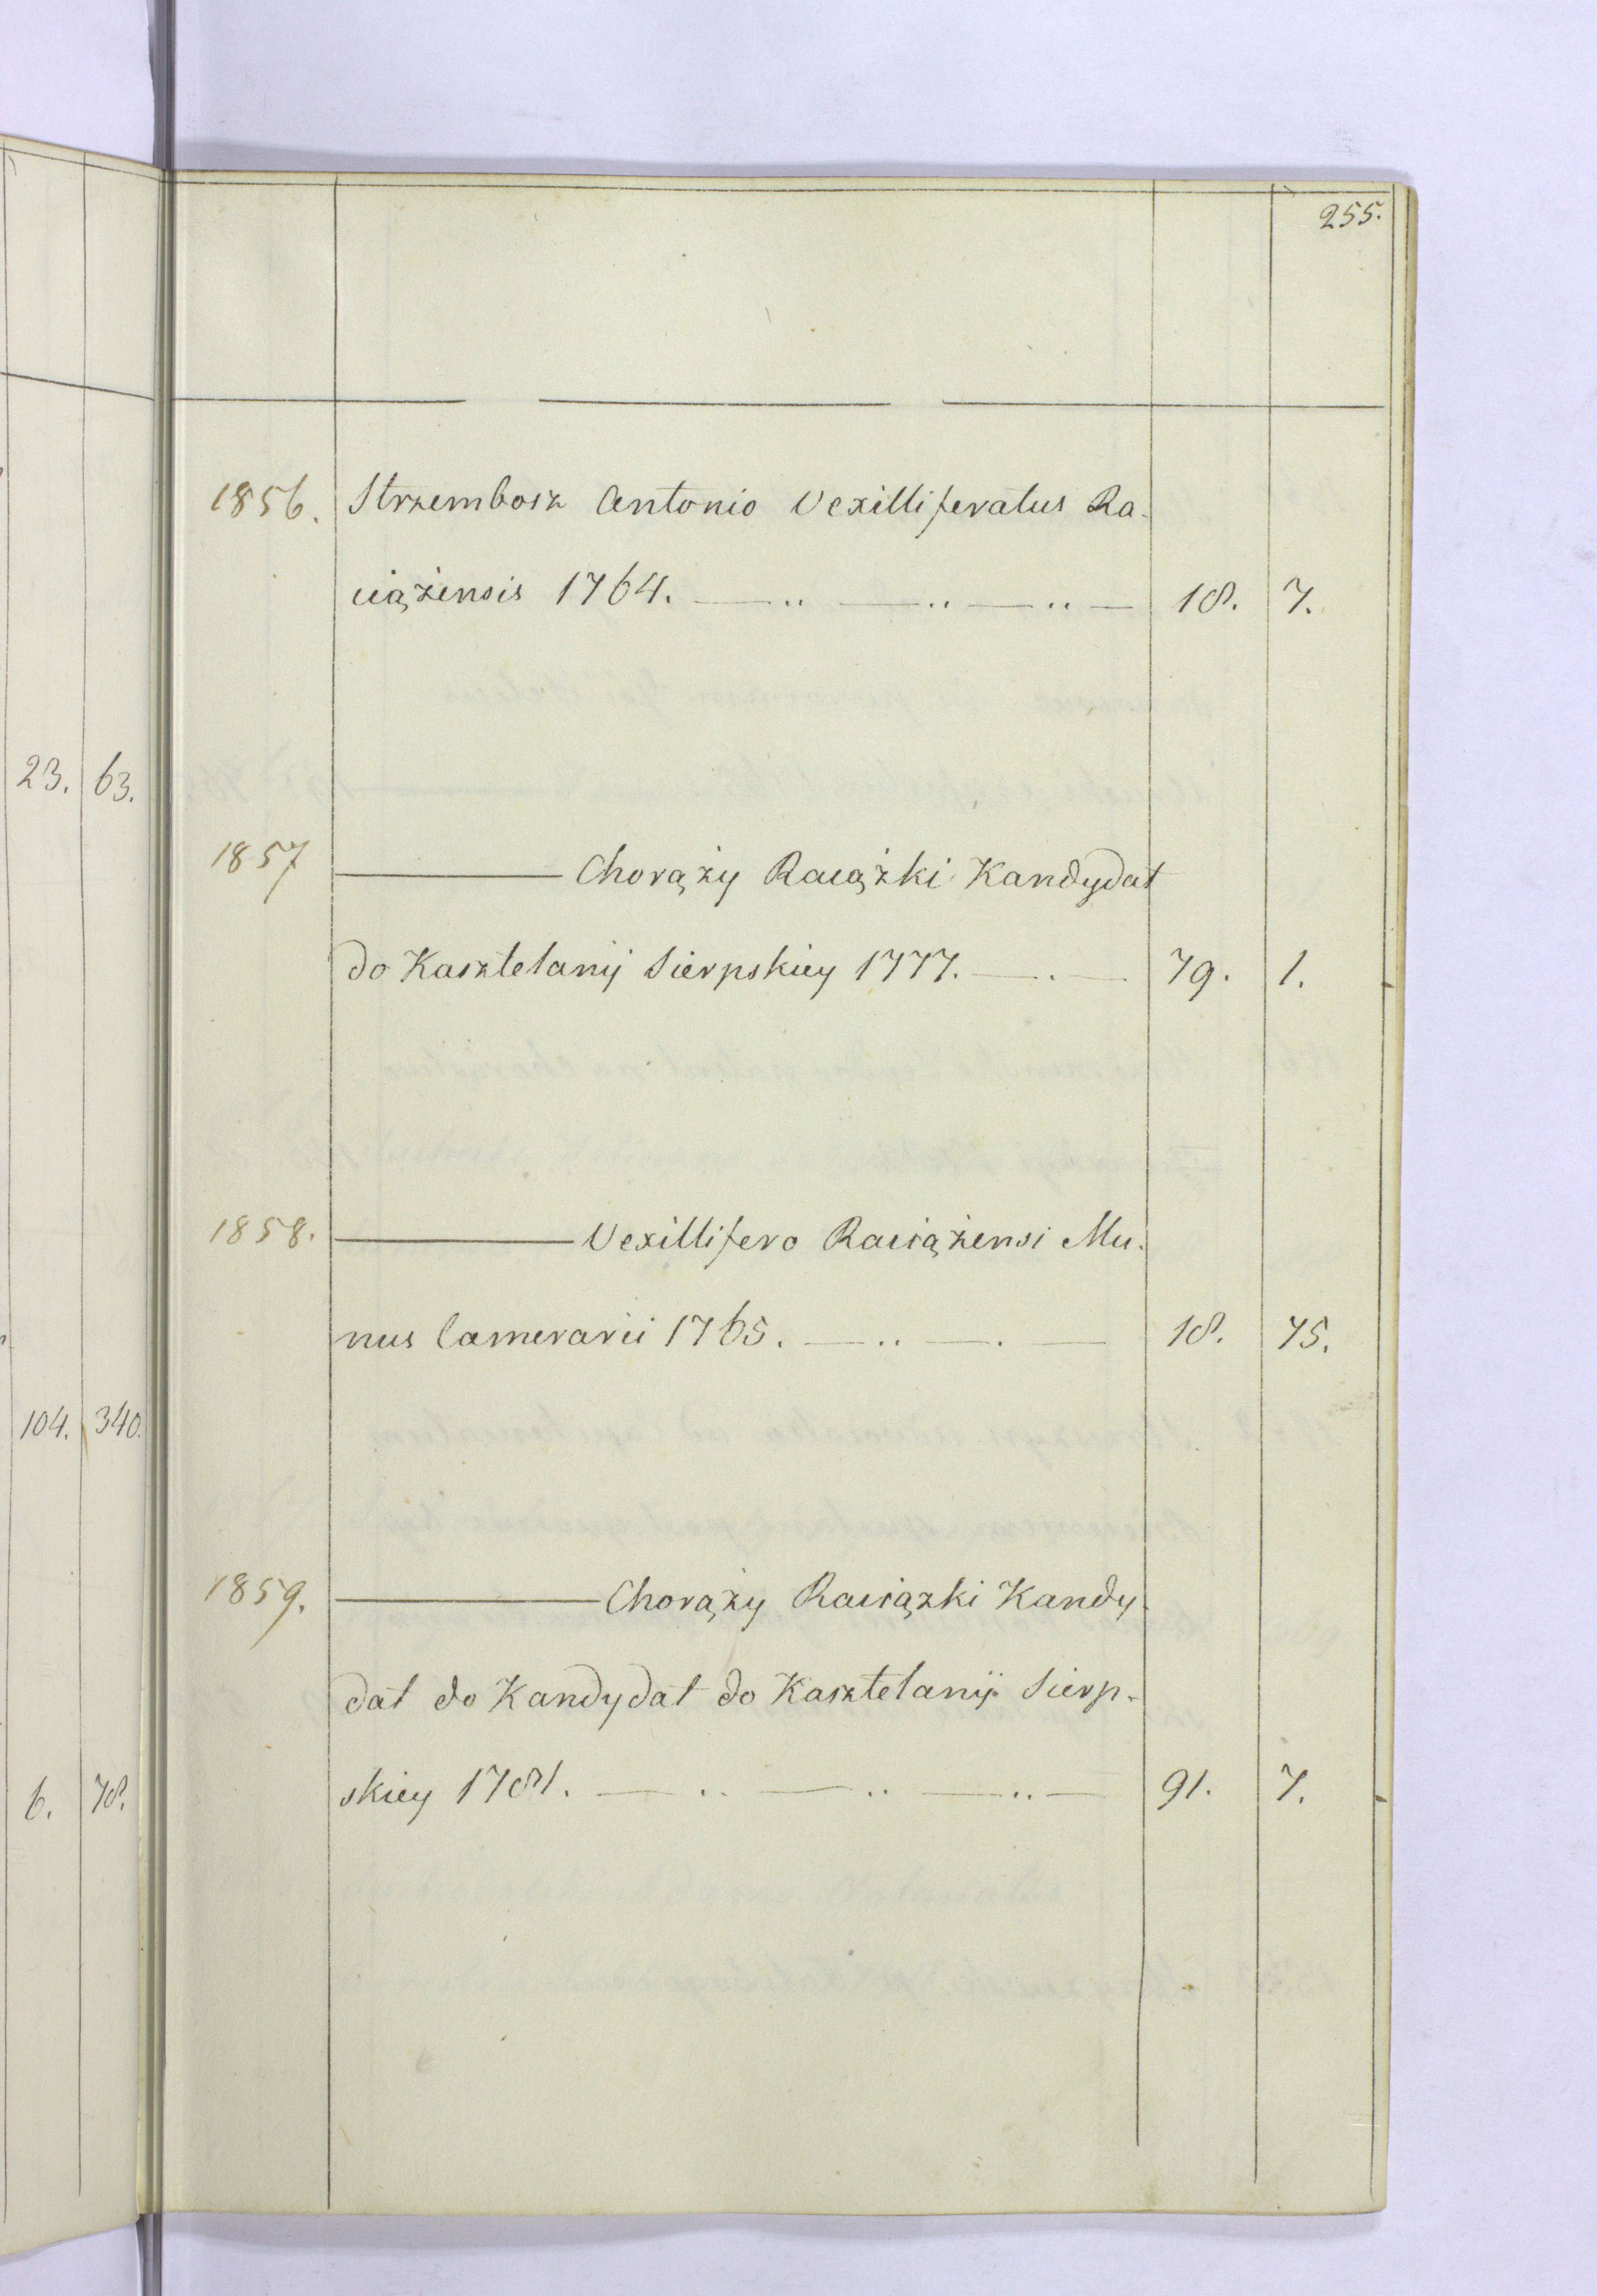 255.
1856. Strzembosz Antonio Vexilliferatus Ra-
ciążensis 1764. — .. — .. — .. — 18. 7.
23. 63.
1857 ——— Chorąży Raciązki Kandydat
do Kasztelanij Sierpskiey 1777. — . — 79. 1.
1858. ——— Vexillifero Raciążensi Mu-
nus Camerarii 1765. — .. — . — 18. 75.
104. 340.
1859. ——— Chorąży Raciązki Kandy-
dat do Kandydat do Kasztelanij Sierp-
skiey 1781. — .. — .. — .. — 91. 7.
6. 78.